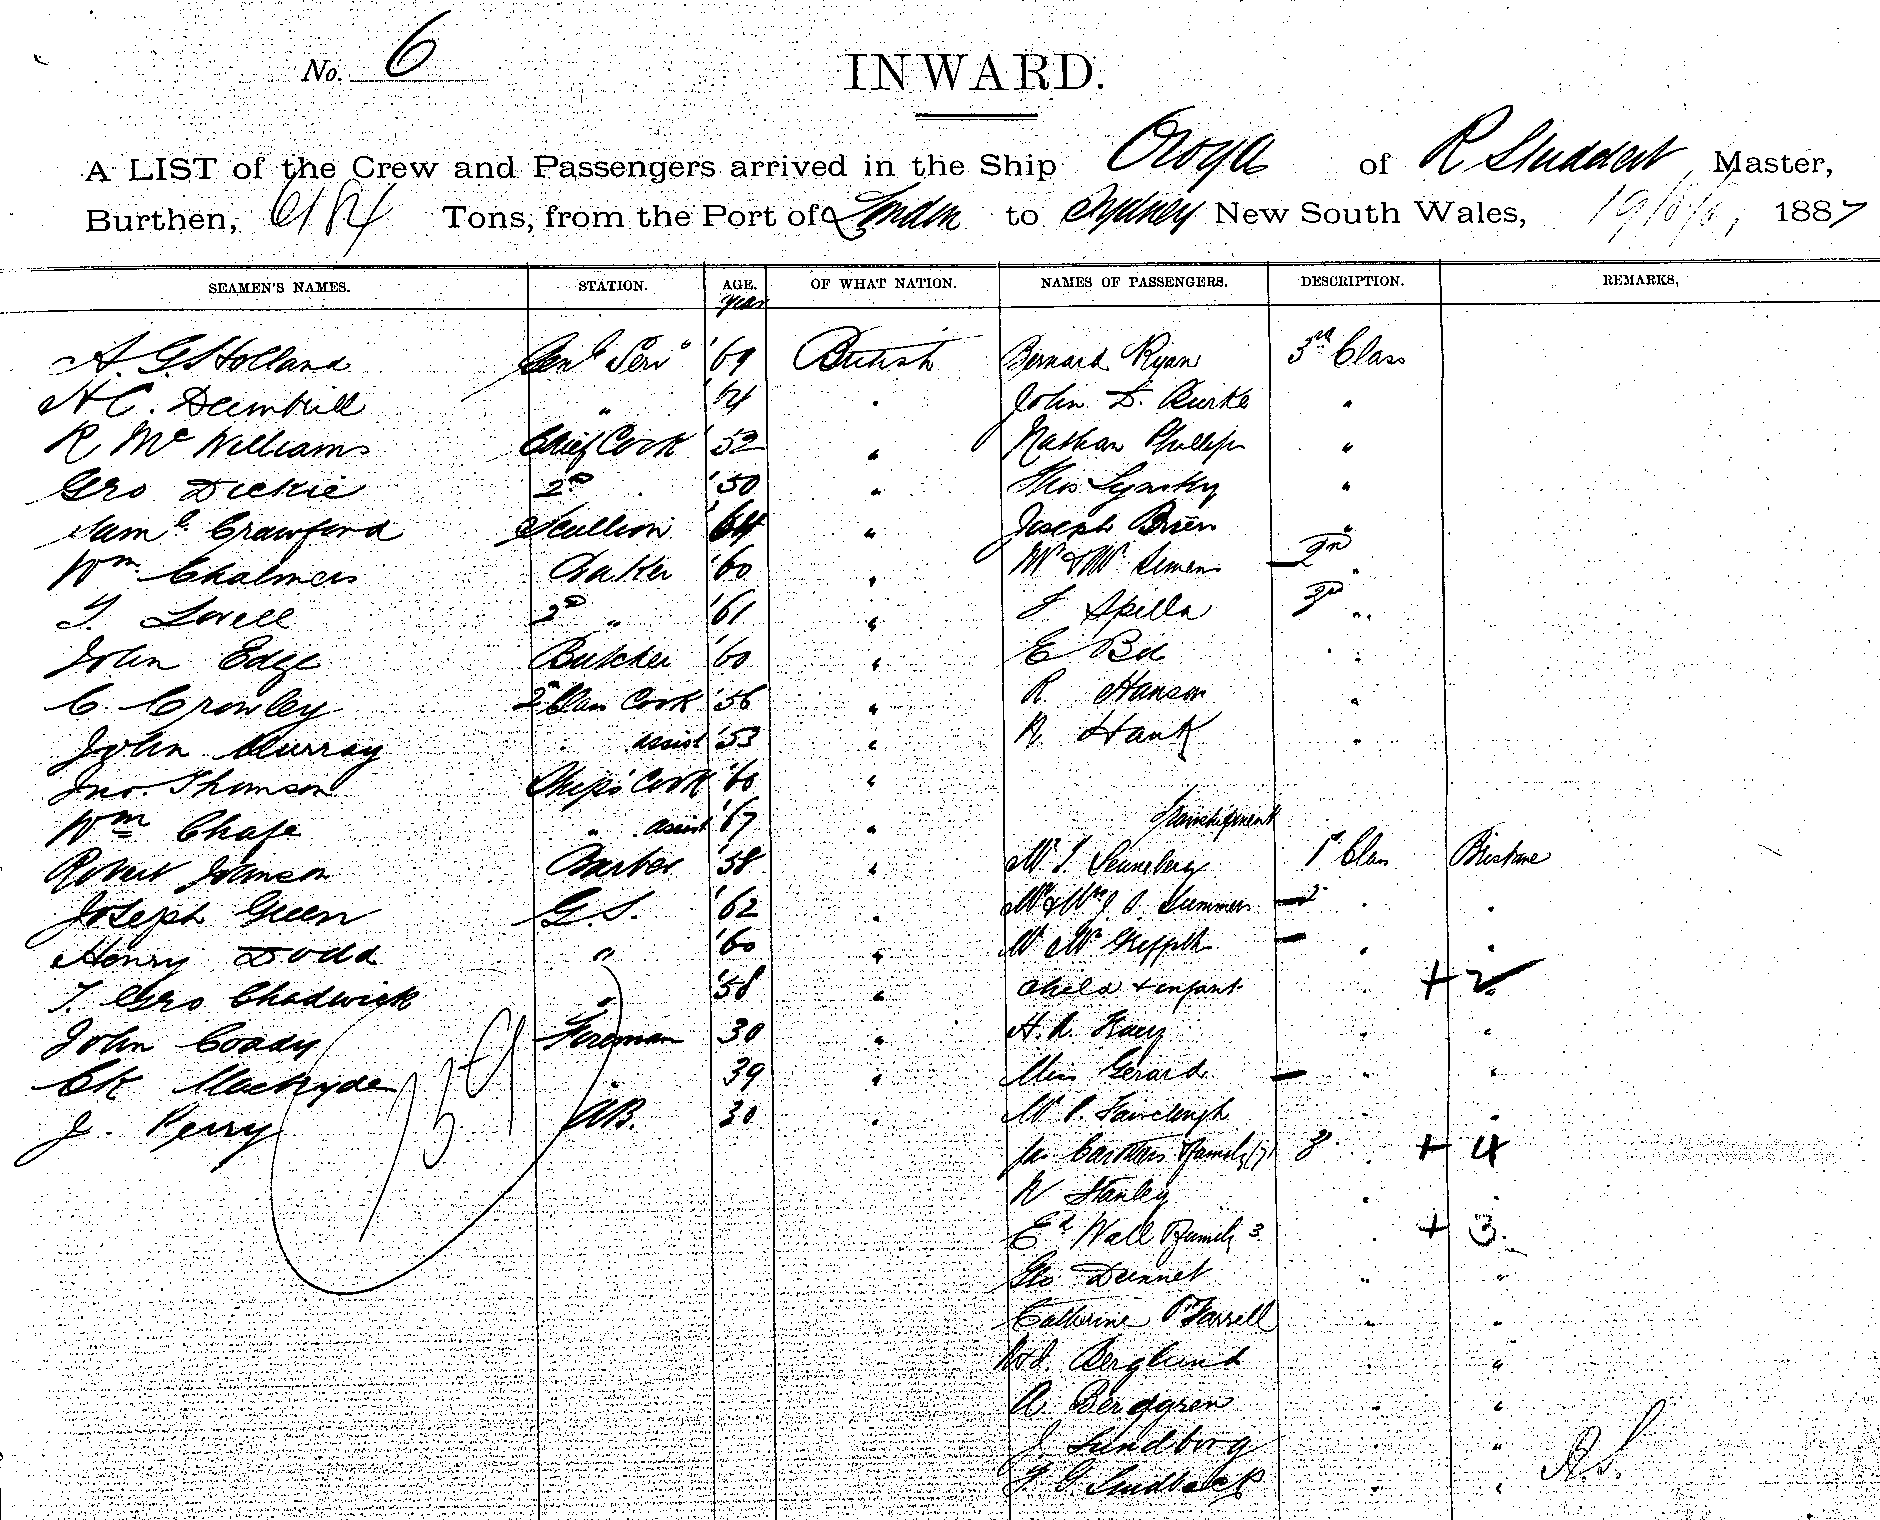 No. 6
INWARD.
A LIST of the Crew and Passengers arrived in the Ship Oroya of R Studdert Master,
Burthen, 6184 Tons, from the Port of London to Sydney New South Wales, 1887
SEAMEN'S NAMES. STATION. AGE. OF WHAT NATION. NAMES OF PASSENGERS. DESCRIPTION. REMARKS,
year
A. G. Holland Genl Serv '69 British Bernard Ryan 3rd Class
H C. " '74 " John D. Burke "
R McWilliams Chief Cook '52 " Nathan Phillips "
Geo Dickie 2d '50 " Thos "
Saml Crawford Scullion '64 " Joseph Brien "
Wm Chalmers Baker '60 " 2nd "
T. Lovell 2d " '61 " J Spilla 3rd "
John Edge Butcher '60 " E "
C. Crowley 2nd Class Cook '56 " R Hanson "
John Murray " assist '53 " R Hank "
Jno. Thomson Ships Cook '60 "
Wm Chafe " assist '67 " Transhipment
Robert Johnson Barber '58 " Mr 1st Class Brisbane
Joseph Green G. S. '62 " Mr & Mrs J. S. Summers " "
Henry Dodd " '60 " Griffith " "
T. Geo Chadwick " '58 " child + infant " + 2
John Coady Fireman 30 " H. R. " "
Ck Mackryde " 39 " Miss Gerard " "
J. Perry AB. 30 " Mr P. Fairclough " "
Jas Carothers & family (7) 3 " + 4
W Stanley " "
Ed Wall & family 3 " + 3.
Geo Dunnet " "
Catherine O'Farrell " "
Berglund " "
A Berggren " "
J Lundborg " "
F G Sundback " "
159
A.S.